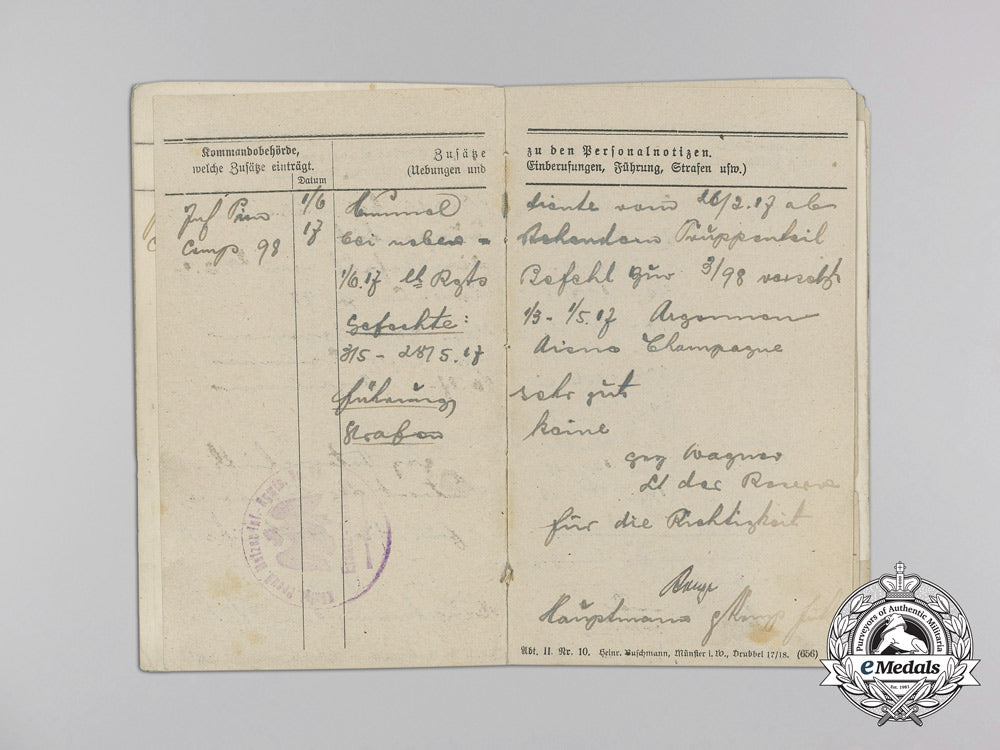 Kommandobehörde,
welche Zusätze einträgt.
Datum
Zusätze
(Uebungen und
Inf Pion
Comp 98
1/6
17
Himmel
bei neben =
1/6.17 lt Rgts
Gefechte:
3/5 - 28/5.17
Führung
Strafen
zu den Personalnotizen.
Einberufungen, Führung, Strafen usw.)
diente vom 26/2.17 als
stehendem Truppenteil
Befehl zur 3/98 versetzt
1/3 - 1/5.17 Argonnen
Aisne Champagne
sehr gut
keine
gez Wagner
Lt der Reserve
für die Richtigkeit
Hauptmann
Abt. II. Nr. 10. Heinr. Buschmann, Münster i. W., Drubbel 17/18. (656)
Purveyors of Authentic Militaria
eMedals
Est. 1983